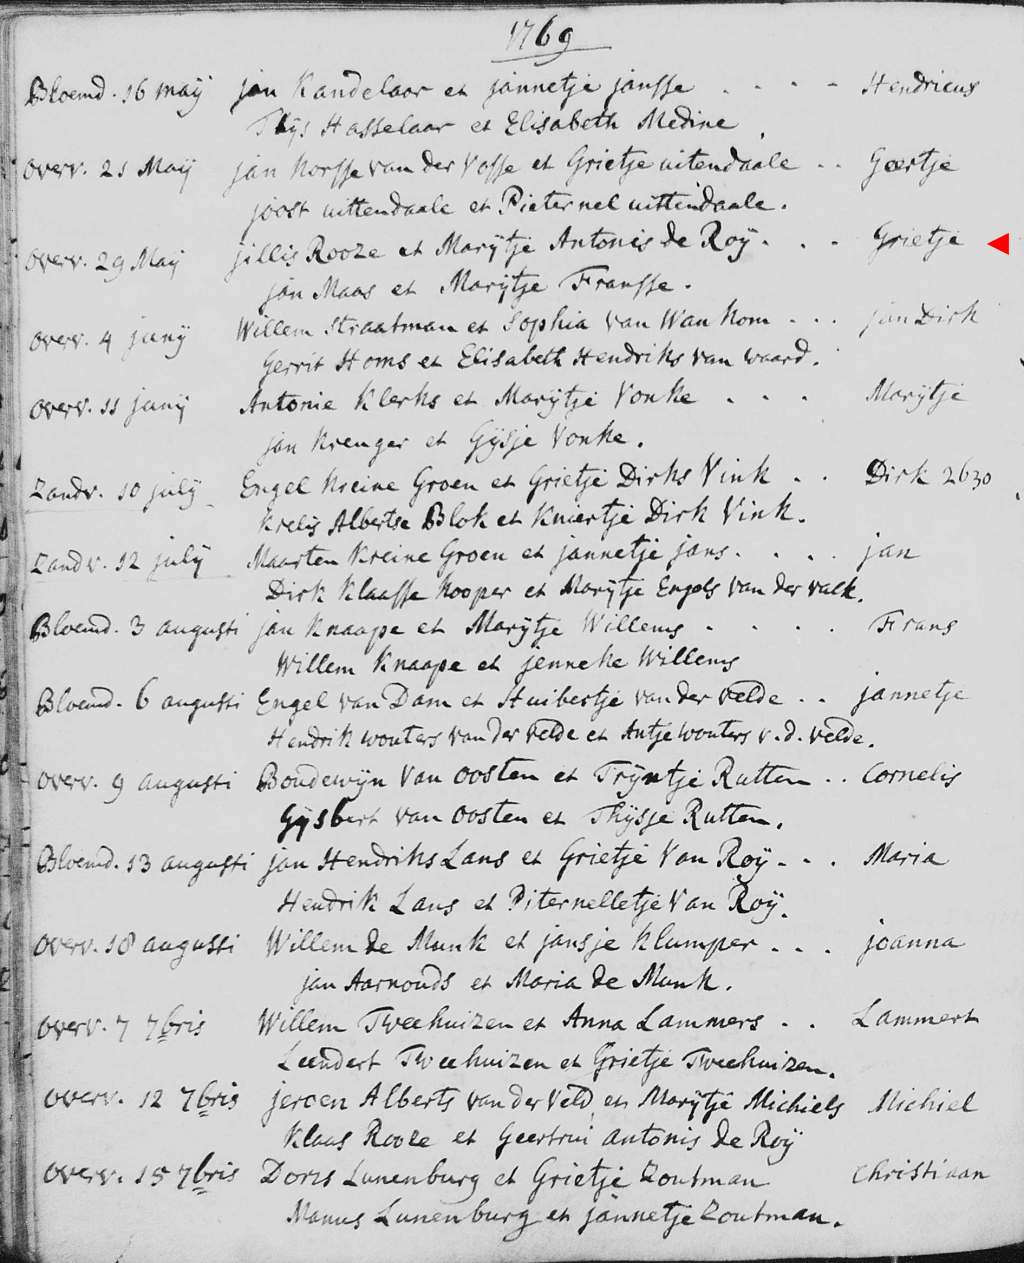 1769
Bloemd. 16 maÿ jan Kandelaar et jannetje jansse . . . - Hendricus
Thÿs Hasselaar et Elisabeth Medine.
overv. 21 Maÿ jan Korsse van der Vosse et Grietje uitendaale . . Geertje
joost uittendaale et Pieternel uittendaale.
overv. 29 Maÿ jillis Rooze et Marÿtje Antonis de Roÿ. . . Grietje
jan Maas et Marÿtje Fransse.
overv. 4 junÿ Willem Straatman et Sophia van Wankom . . . jan Dirk
Gerrit Homs et Elisabeth Hendriks van waard.
overv. 11 junÿ Antonie Klerks et Marÿtje Vonke . . . Marÿtje
jan Kreuger et Gÿsje Vonke.
Zandv. 10 julÿ Engel Kreine Groen et Grietje Dirks Vink . . Dirk 2630
Krelis Albertse Blok et Kniertje Dirk Vink.
Zandv. 12 julÿ Maarten Kreine Groen et jannetje jans . . . . jan
Dirk Klaasse Kooper et Marÿtje Engels van der valk.
Bloemd. 3 augusti jan Knaape et Marÿtje Willems . . . . Frans
Willem Knaape et jenneke Willems
Bloemd. 6 augusti Engel van Dam et Huibertje van der velde . . jannetje
Hendrik wouters van der velde et Antje wouters v. d. velde.
overv. 9 augusti Boudewÿn Van Oosten et Trÿntje Rutten . . Cornelis
Gÿsbert van Oosten et Thÿsje Rutten.
Bloemd. 13 augusti jan Hendriks Lans et Grietje Van Roÿ . . . Maria
Hendrik Lans et Piternelletje Van Roÿ.
overv. 18 augusti Willem de Munk et jansje Klumper . . . joanna
jan Aarnouds et Maria de Munk.
overv. 7 7bris Willem Tweehuizen et Anna Lammers . . Lammert
Leendert Tweehuizen et Grietje Tweehuizen.
overv. 12 7bris jeroen Alberts van der Veld et Marÿtje Michiels Michiel
Klaas Rooze et Geertrui Antonis de Roÿ
overv. 15 7bris Dorus Lunenburg et Grietje Zoutman Christiaan
Manus Lunenburg et jannetje Zoutman.